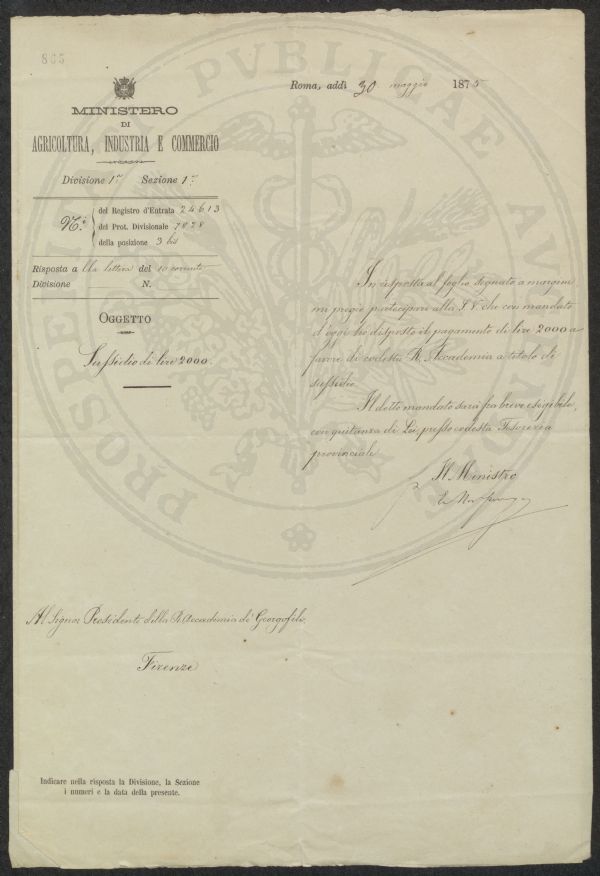 865
Roma, addì 30 maggio 1875
MINISTERO
DI
AGRICOLTURA, INDUSTRIA E COMMERCIO
Divisione 1ª Sezione 1ª
N.i
del Registro d'Entrata 24613
del Prot. Divisionale 7828
della posizione 3 bis
Risposta a lla lettera del 10 corrente
Divisione N.
OGGETTO
Sussidio di lire 2000.
In risposta al foglio segnato a margine
mi pregio partecipare alla S. V. che con mandato
d'oggi ho disposto il pagamento di lire 2000 a
favore di codesta R. Accademia a titolo di
sussidio.
Il detto mandato sarà fra breve esigibile,
con quitanza di Lei, presso codesta Tesoreria
provinciale.
Il Ministro
Al Signor Presidente della R. Accademia de' Georgofili
Firenze
Indicare nella risposta la Divisione, la Sezione
i numeri e la data della presente.
PROSPERITATI PVBLICAE AV